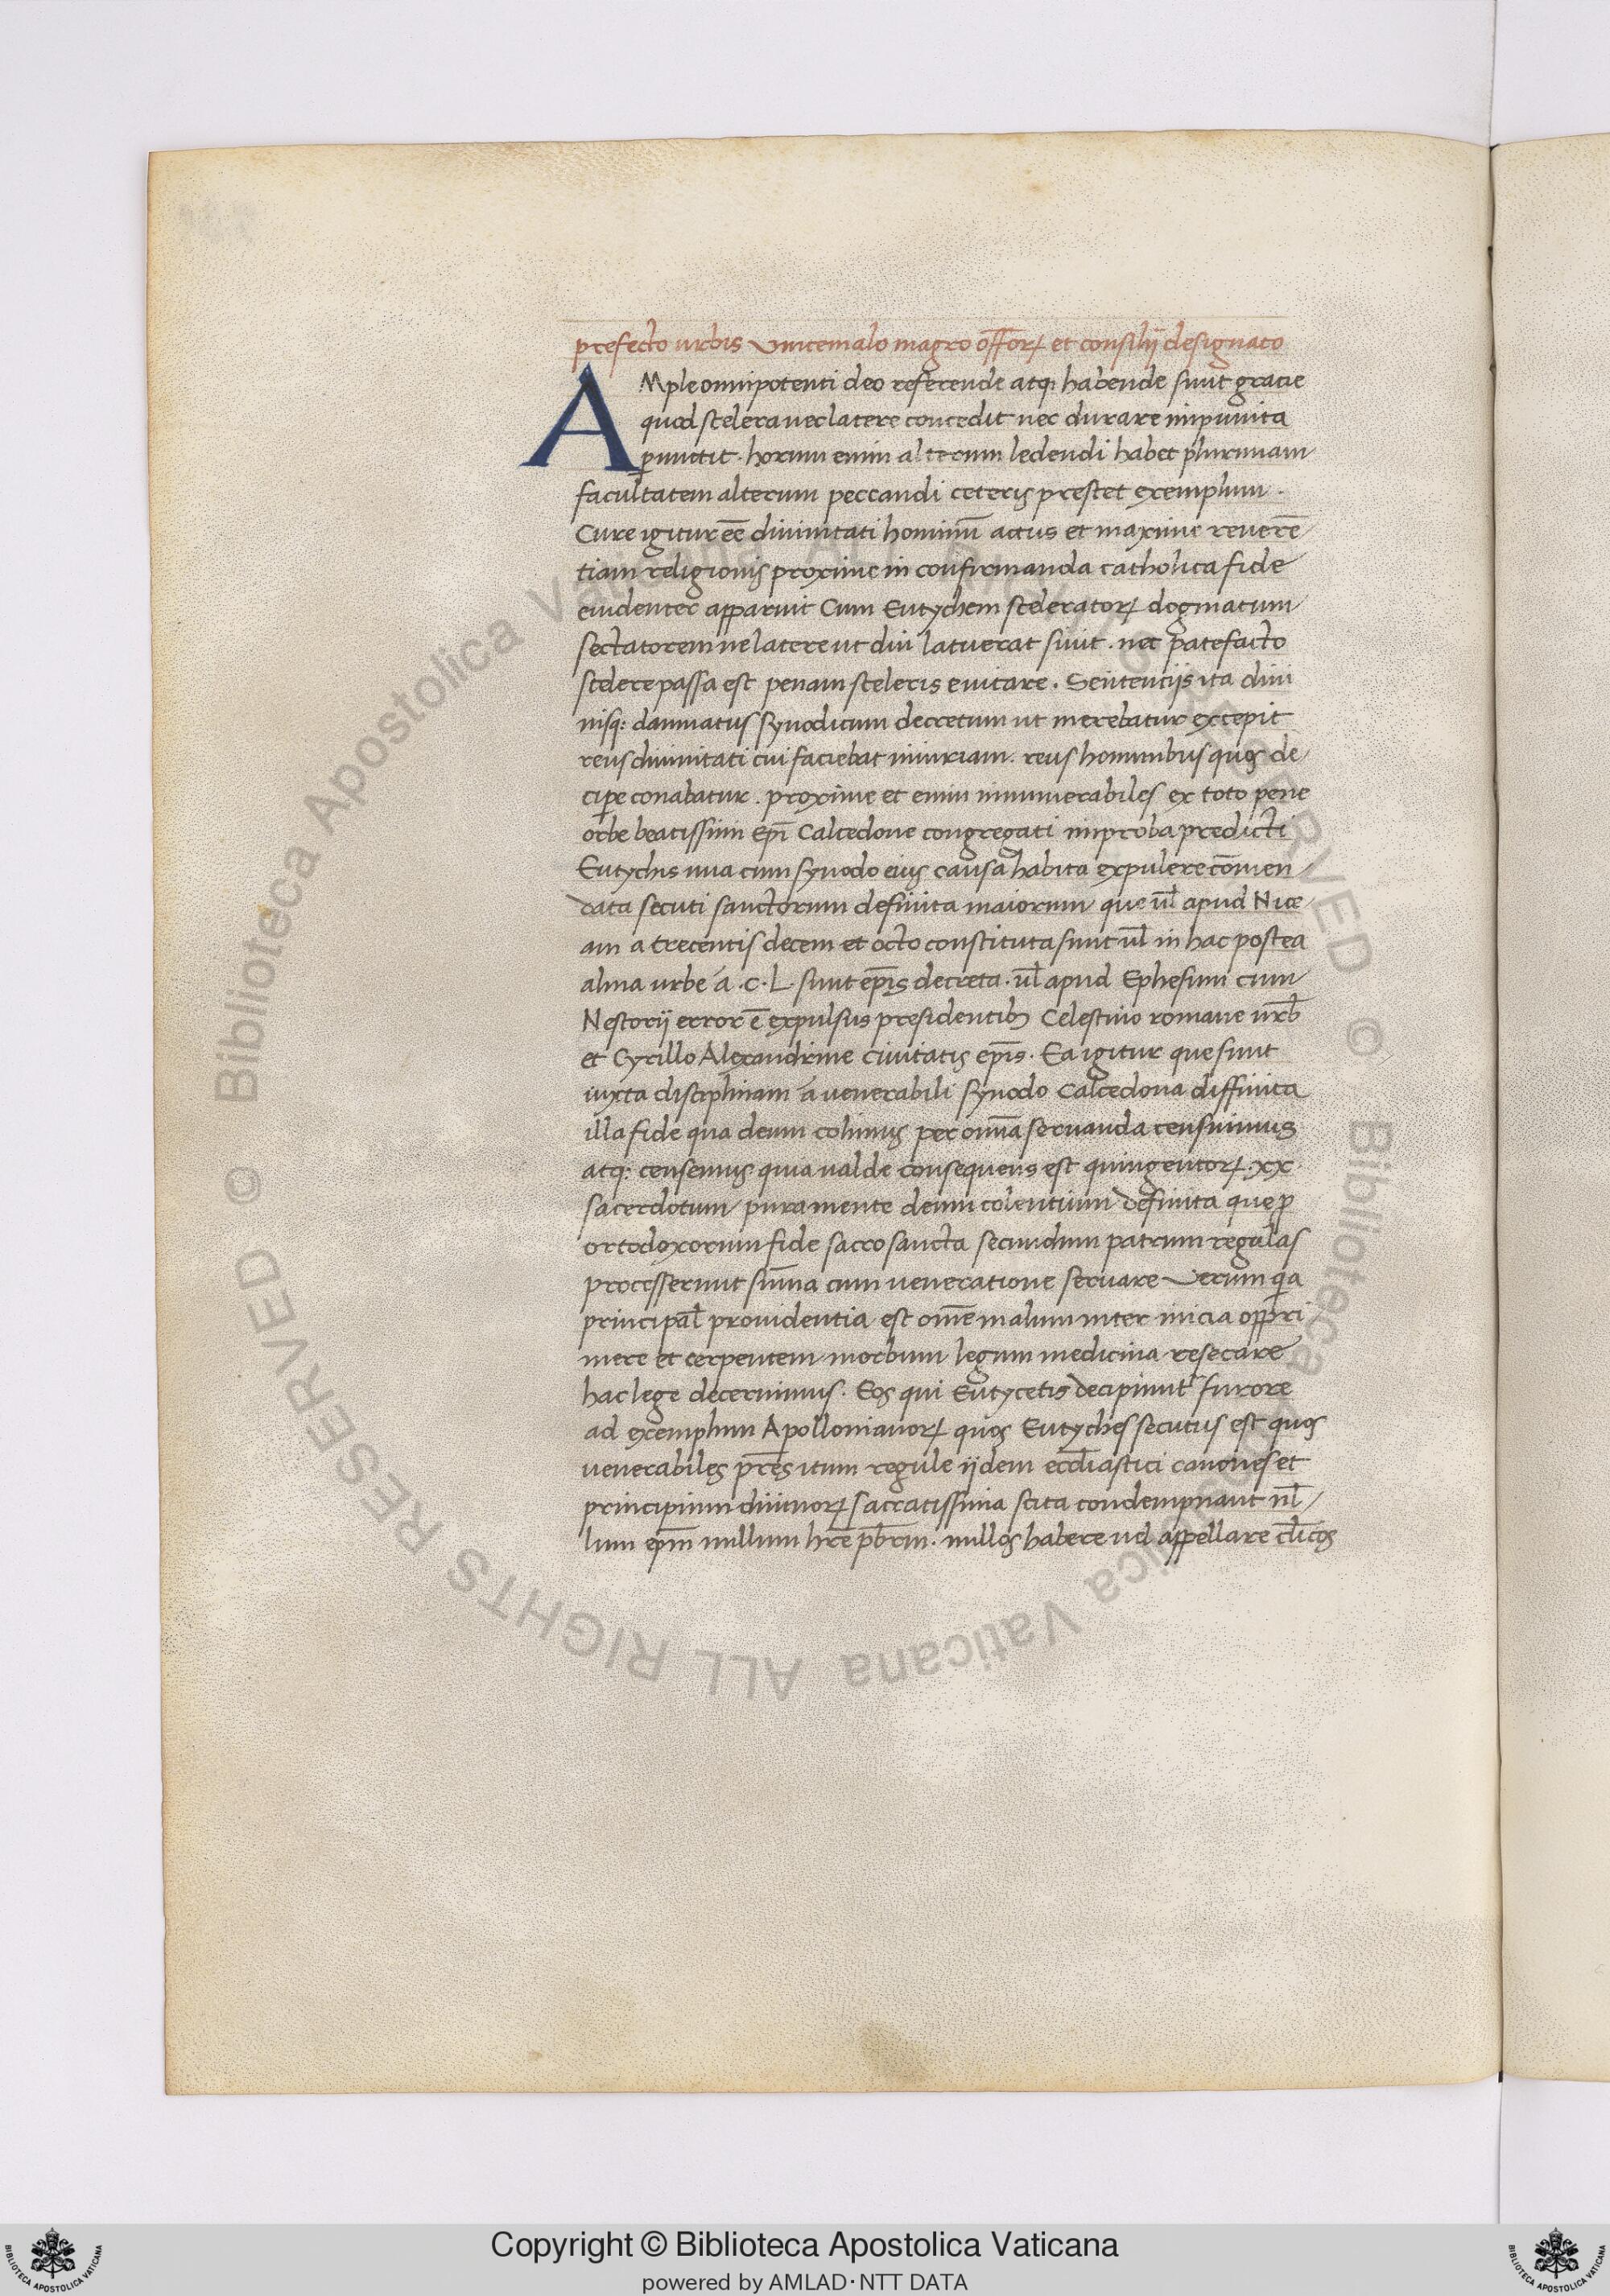 prefecto urbis Vincemalo magro offor̄ꝝ et consilij designato
AMple omnipotenti deo referende atq; habende sunt gratie
quod scelera nec latere concedit nec durare impunita
ꝑmittit. horum enim alterum ledendi habet plurimam
facultatem alterum peccandi ceteris prestet exemplum.
Cure igitur ēē diuinitati hominū actus et maxime reuerē
tiam religionis proxime in confirmanda catholica fide
euidenter apparuit Cum Eutychem sceleratoꝝ dogmatum
sectatorem ne latere ut diu latuerat siuit. nec patefacto
scelere passa est penam sceleris euitare. Sententijs ita diui
nisq: damnatus synodicum decretum ut merebatur excepit
reus diuinitati cui faciebat iniuriam. reus hominibus quos de
ciꝑe conabatur. proxime et enim innumerabiles ex toto pene
orbe beatissimi ep̄i Calcedone congregati improba predicti
Eutychis una cum synodo eius causa habita expulere cōmen
cata secuti sanctorum definita maiorum que ul̄ apud Nice
am a trecentis decem et octo constituta sunt ul̄ in hac postea
alma urbe á .C.L. sunt ep̄is decreta. ul̄ apud Ephesum cum
Nestorij error ē expulsus presidentib; Celestino romane urb̄
et Cyrillo Alexandrine ciuitatis ep̄is. Ea igitur que sunt
iuxta disciplinam á venerabili synodo Calcedona diffinita
illa fide qua deum colimus per om̄ia seruanda censuimus
atq: censemus quia ualde consequens est quingentoꝝ .xx.
sacerdotum pura mente deum colentium definita que ꝓ
ortodoxorum fide sacro sancta secundum patrum regulas
processerunt sum̄a cum ueneratione seruare Verum q̄a
principal̄ prouidentia est om̄e malum inter inicia opp̄ri
mere et cerpentem morbum legum medicina resecare
hac lege decernimus. Eos qui Eutycetis decipiunt̄ furore
ad exemplum Apollonianoꝝ quos Eutyches secutus est quos
uenerabiles pr̄es itum regule ijdem eccl̄iastici canones et
principium diuinoꝝ sacratissima scita condempnant nl̄
lum ep̄m nullum hr̄e pb̄rm. nullos habere uel appellare cl̄icos
Copyright © Biblioteca Apostolica Vaticana
powered by AMLAD·NTT DATA